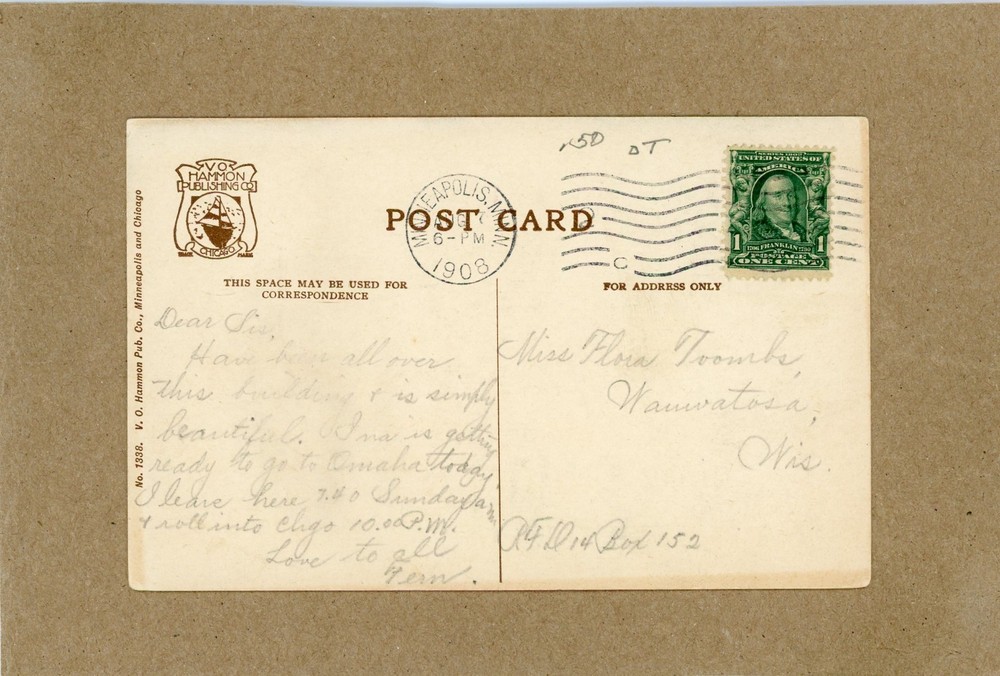 .50 DT
V.O.
HAMMON
PUBLISHING CO
CHICAGO
TRADE MARK
No. 1338. V. O. Hammon Pub. Co., Minneapolis and Chicago
POST CARD
MINNEAPOLIS, MINN
6-PM
1908
C
SERIES 1902
UNITED STATES OF
AMERICA
1 1706 FRANKLIN 1790 1
POSTAGE
ONE CENT
THIS SPACE MAY BE USED FOR
CORRESPONDENCE
Dear Sis,
Have been all over
this building & is simply
beautiful. Ina is getting
ready to go to Omaha today.
I leave here 7.40 Sunday am
& roll into Chgo 10.00 P.M.
Love to all
Fern.
FOR ADDRESS ONLY
Miss Flora Toombs,
Wauwatosa,
Wis.
R.F.D 14 Box 152